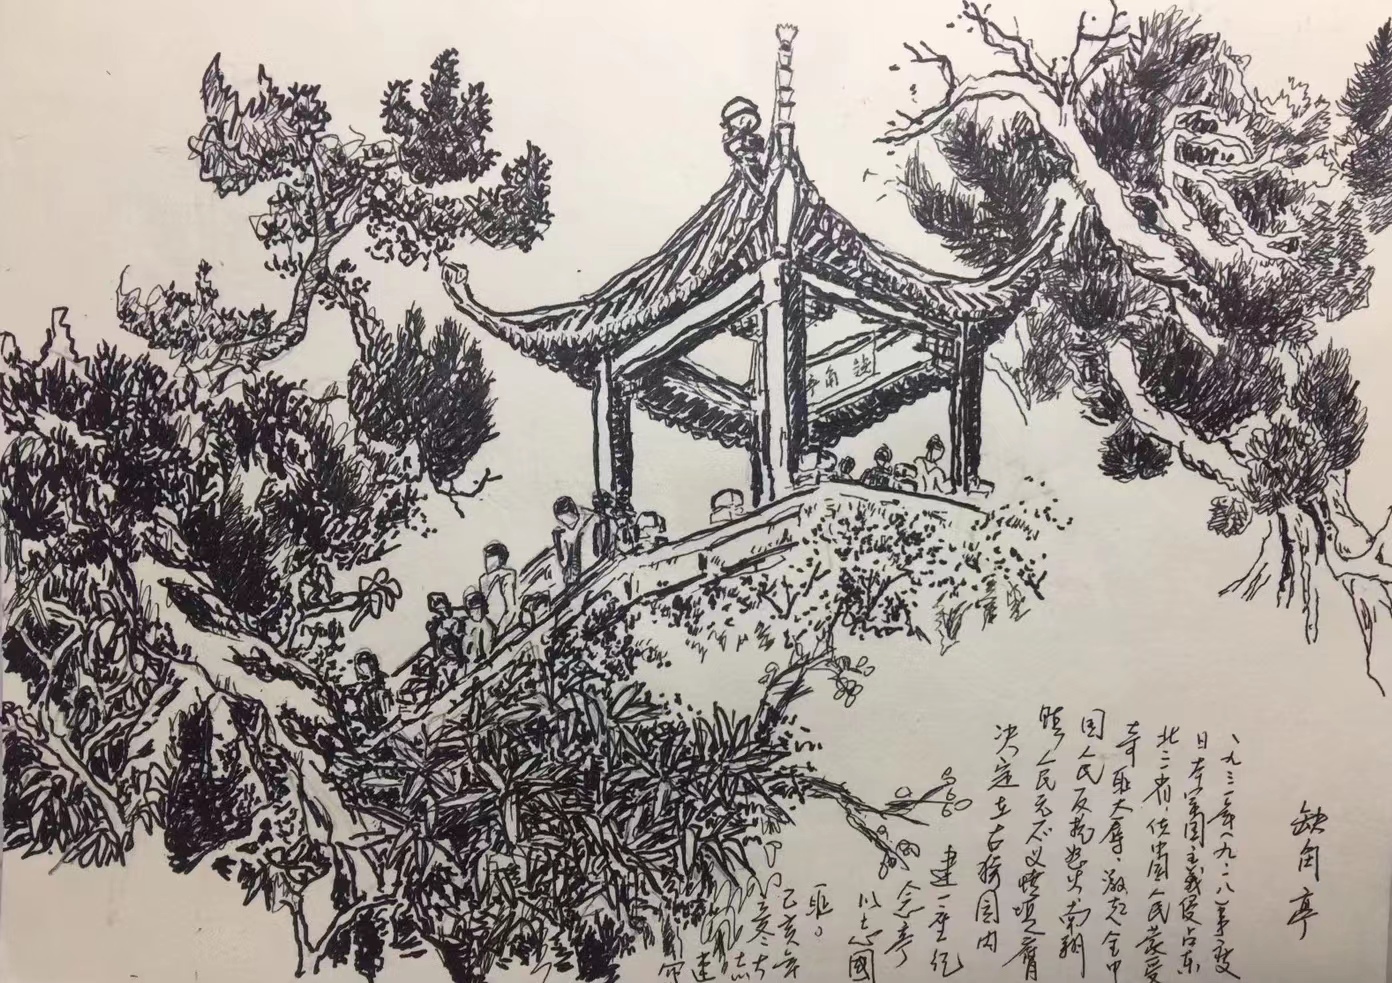 缺角
缺角亭
一九三一年九.一八事变
日本军国主义侵占东
北三省.使中国人民蒙受
奇耻大辱.激起全中
国人民反抗怒火.南翔
镇人民无不义愤填膺
决定在古猗园内
建一座纪
念亭
以志國
耻。
己亥年
冬
志
建